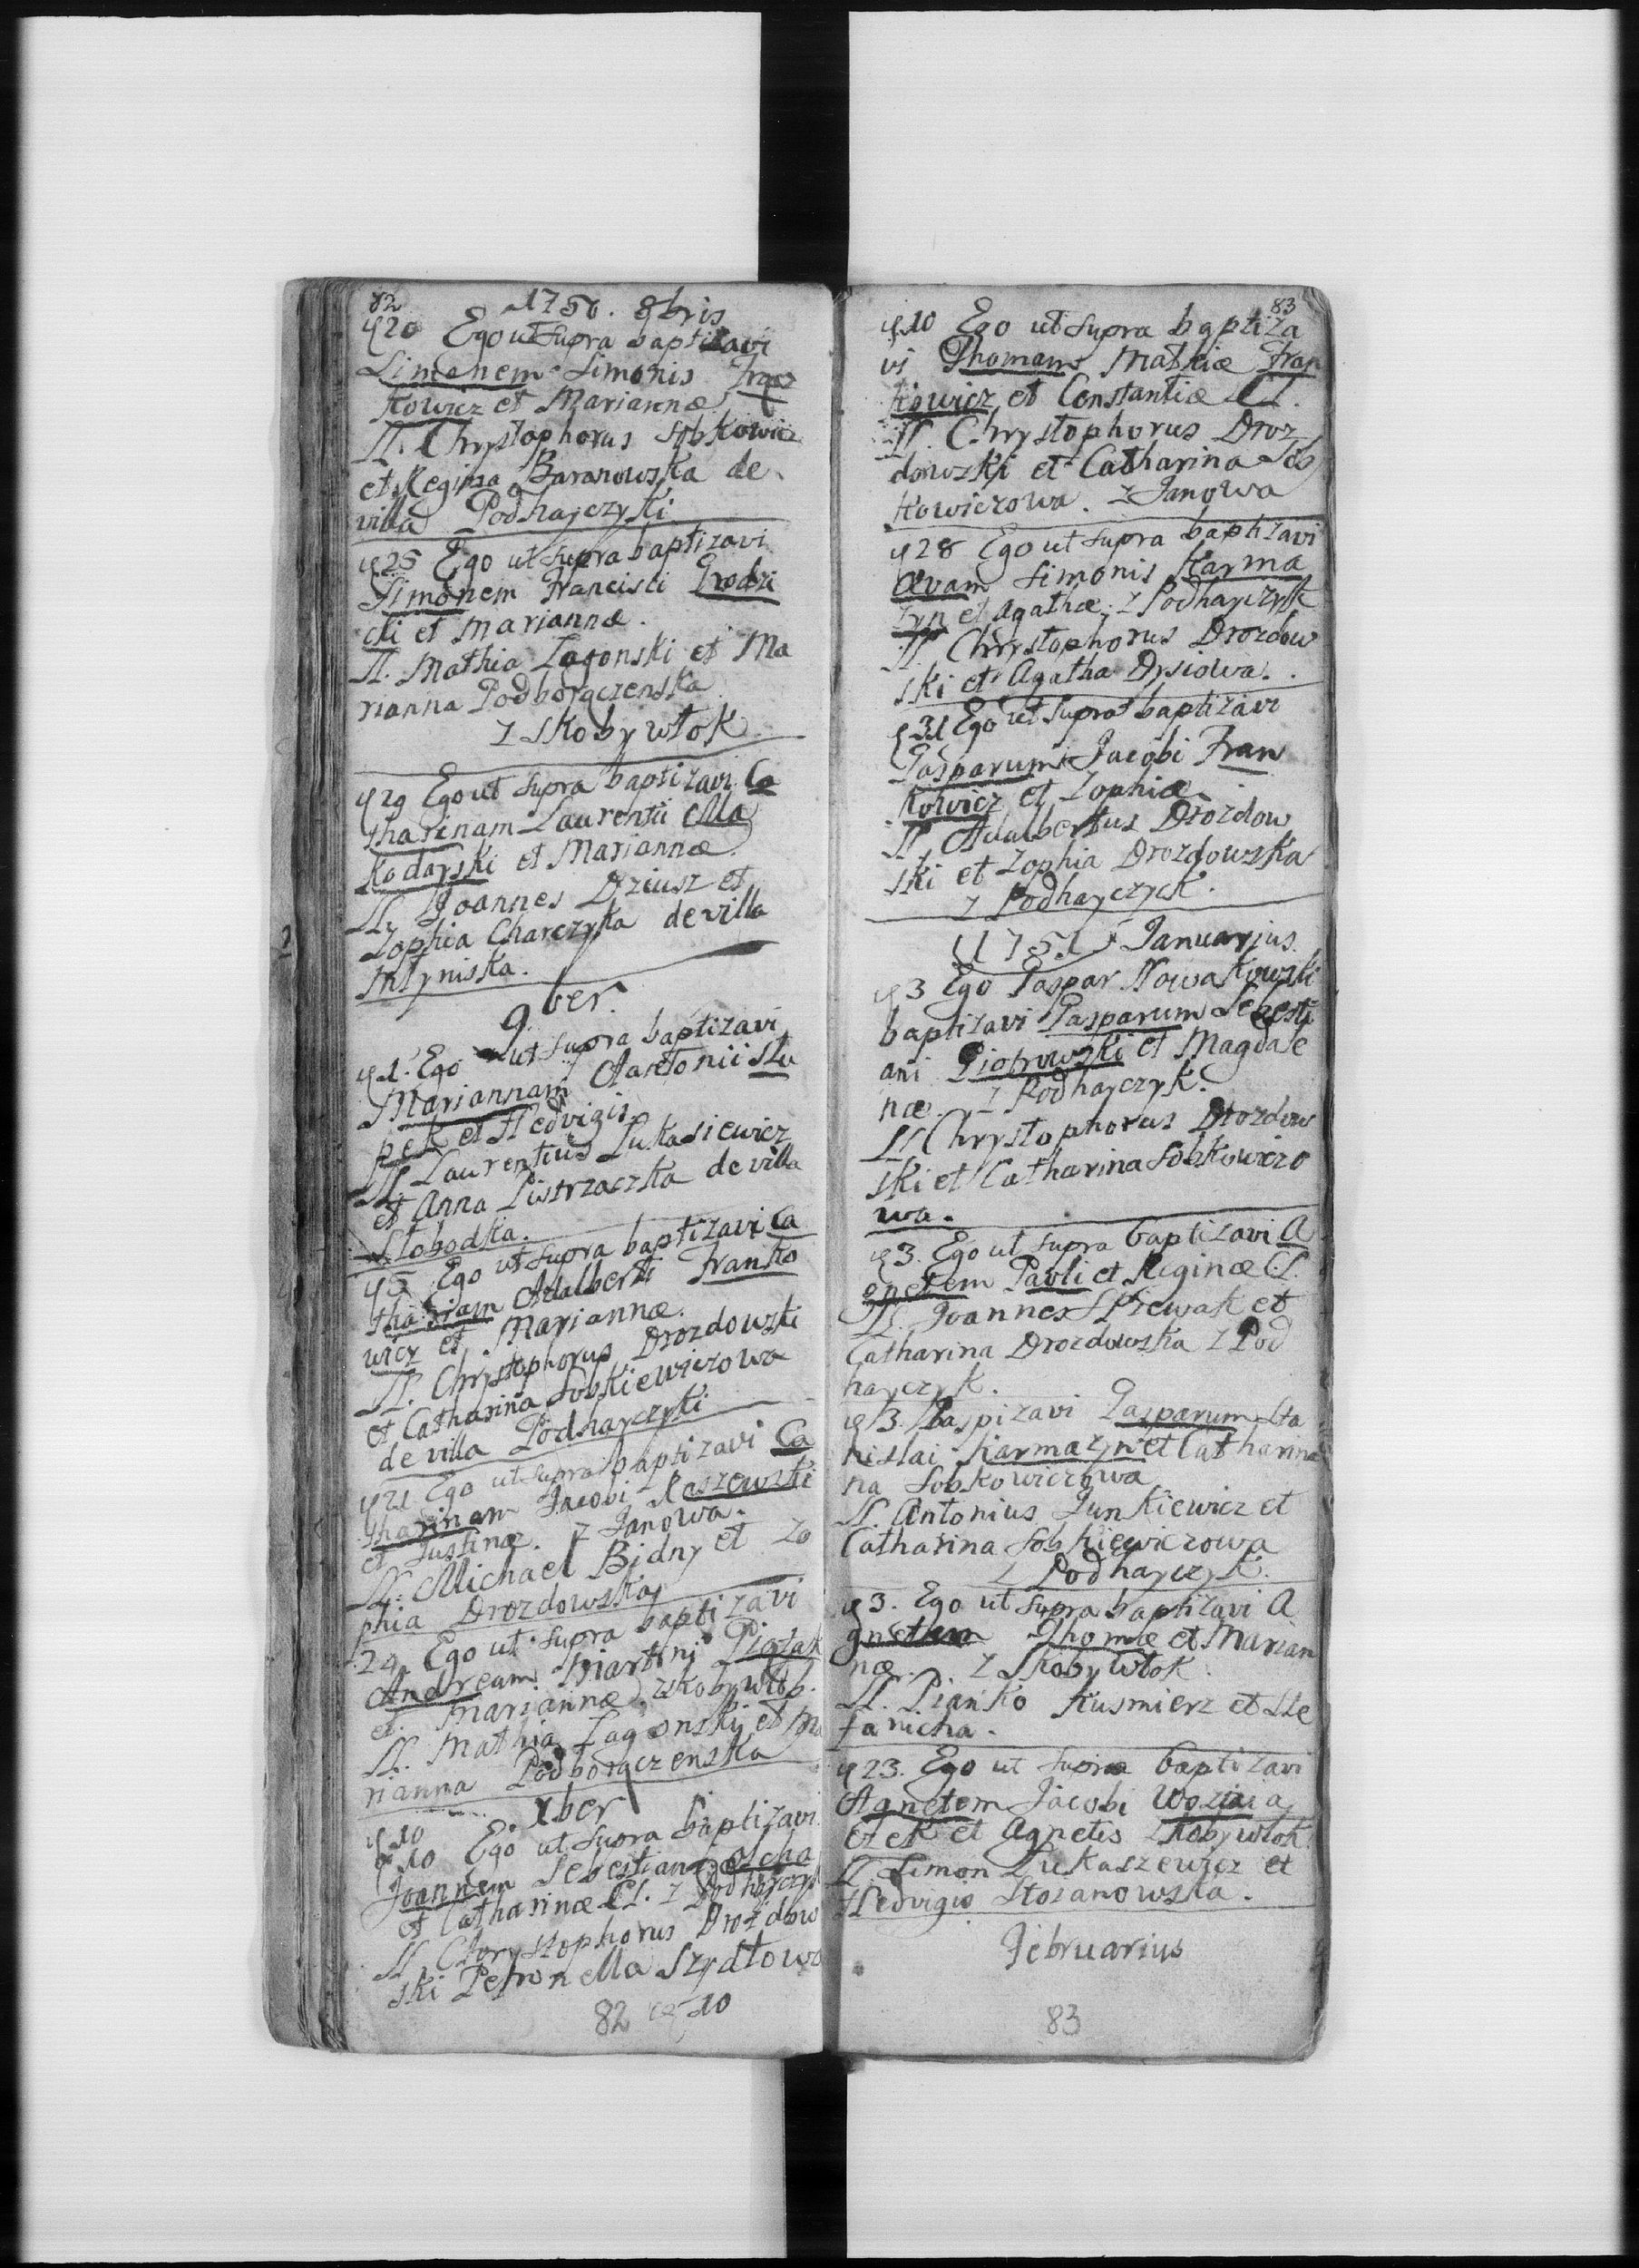 82
1750. 8bris
20 Ego ut supra baptizavi
Simonem Simonis Fran
kowicz et Mariannæ
LL. Chrystophorus Sobkowicz
et Regina Baranowska de
villa Podhayczyki
25 Ego ut supra baptizavi
Simonem Francisci Grodzi
cki et Mariannæ.
LL. Mathia Zagonski et Ma
rianna Podboraczenska
z Skobywłok
29 Ego ut supra baptizavi Ca
tharinam Laurentii Ma
kodayski et Mariannæ
LL. Joannes Dziusz et
Zophia Charczyka de villa
Młyniska.
9ber.
1. Ego ut supra baptizavi
Mariannam Antonii Stu
pek et Hedvigis.
LL. Laurentius Lukasiewicz
et Anna Pistrzaczka de villa
Słobodka.
5 Ego ut supra baptizavi Ca
tharinam Adalberti Franko
wicz et Mariannæ.
LL. Chrystophorus Drozdowski
et Catharina Sobkiewiczowa
de villa Podhayczyki
21 Ego ut supra baptizavi Ca
tharinam Jacobi Raszewski
et Justinæ. Z Janowa.
LL. Michael Bidny et Zo
phia Drozdowska
24 Ego ut supra baptizavi
Andream Martini Piątak
et Mariannæ z Skobywłok.
LL. Mathia Zagonski et Ma
rianna Podboraczenska
Xber
10
10 Ego ut supra baptizavi
Joannem Sebestian
et Catharinæ LL. z Podhayczyk
LL. Chrystophorus Drozdow
ski Petronella Szydłowa
82 10
83
10 Ego ut supra baptiza
vi Thomam Mathiæ Fran
kowicz et Constantiæ LL.
LL. Chrystophorus Droz
dowski et Catharina Sob
kowiczowa. z Janowa
28 Ego ut supra baptizavi
Evam Simonis Karma
zyn et Agathæ. z Podhayczyk
LL Chrystophorus Drozdow
ski et Agatha Drsiowa.
31 Ego ut supra baptizavi
Gasparum Jacobi Fran
kowicz et Zophiæ
LL. Adalbertus Drozdow
ski et Zophia Drozdowska
z Podhayczyck.
1751 Januarius.
3 Ego Gaspar Nowakowski
baptizavi Gasparum Sebesti
ani Piotrowski et Magdale
næ. z Podhayczyk.
LL Chrystophorus Drozdow
ski et Catharina Sobkowiczo
wa.
3. Ego ut supra baptizavi A
gnetem Pavli et Reginæ LL.
LL. Joannes Spiewak et
Catharina Drozdowska z Pod
hayczyk.
3. Baspizavi Gasparum Sta
nislai Karmazyn et Catharina
na Sobkowiczowa
LL. Antonius Junkiewicz et
Catharina Sobkiewiczowa
z Podhayczyk.
3. Ego ut supra baptizavi A
gnetem Thomæ et Marian
næ. z Skobywłok.
LL. Pianko Kusmierz et Ste
fanicha.
23. Ego ut supra baptizavi
Agnetem Jacobi
et Agnetis z Skobywłok.
LL. Simon Lukaszewicz et
Hedvigis Stozanowska.
Februarius
83